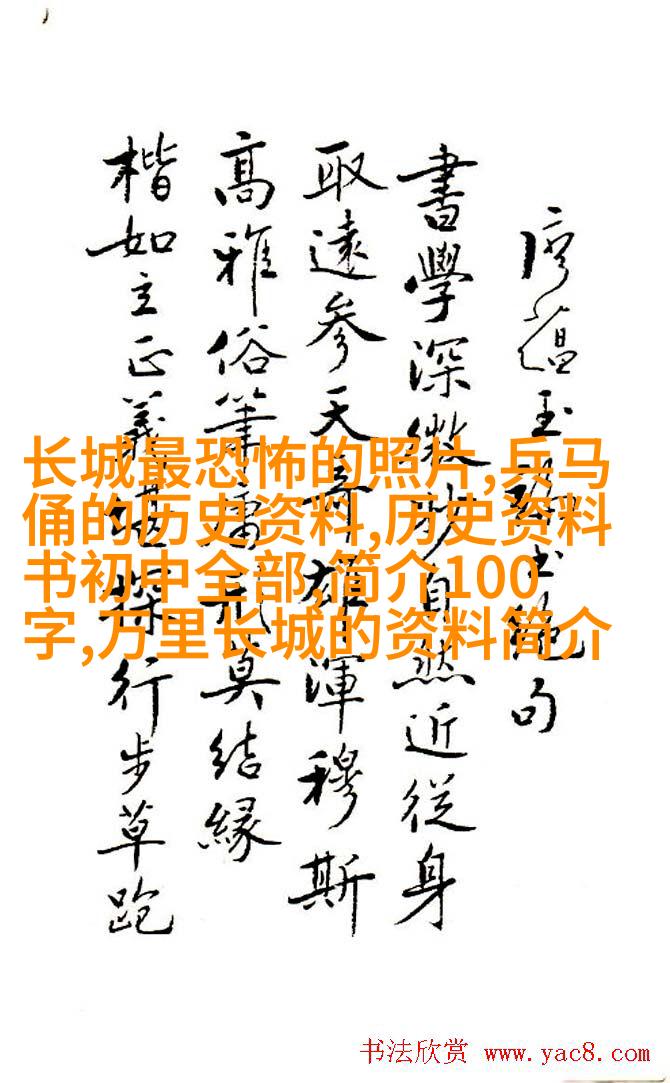 廖蘊玉书絕句
書學深微妙自然近從身
取遠參天雄渾穆斯
高雅俗筆莫結緣
楷如立正行步草跑
长城最恐怖的照片,兵马
俑的历史资料,历史资料
书初中全部,简介100
字,万里长城的资料简介
书法欣赏 www.yac8.com